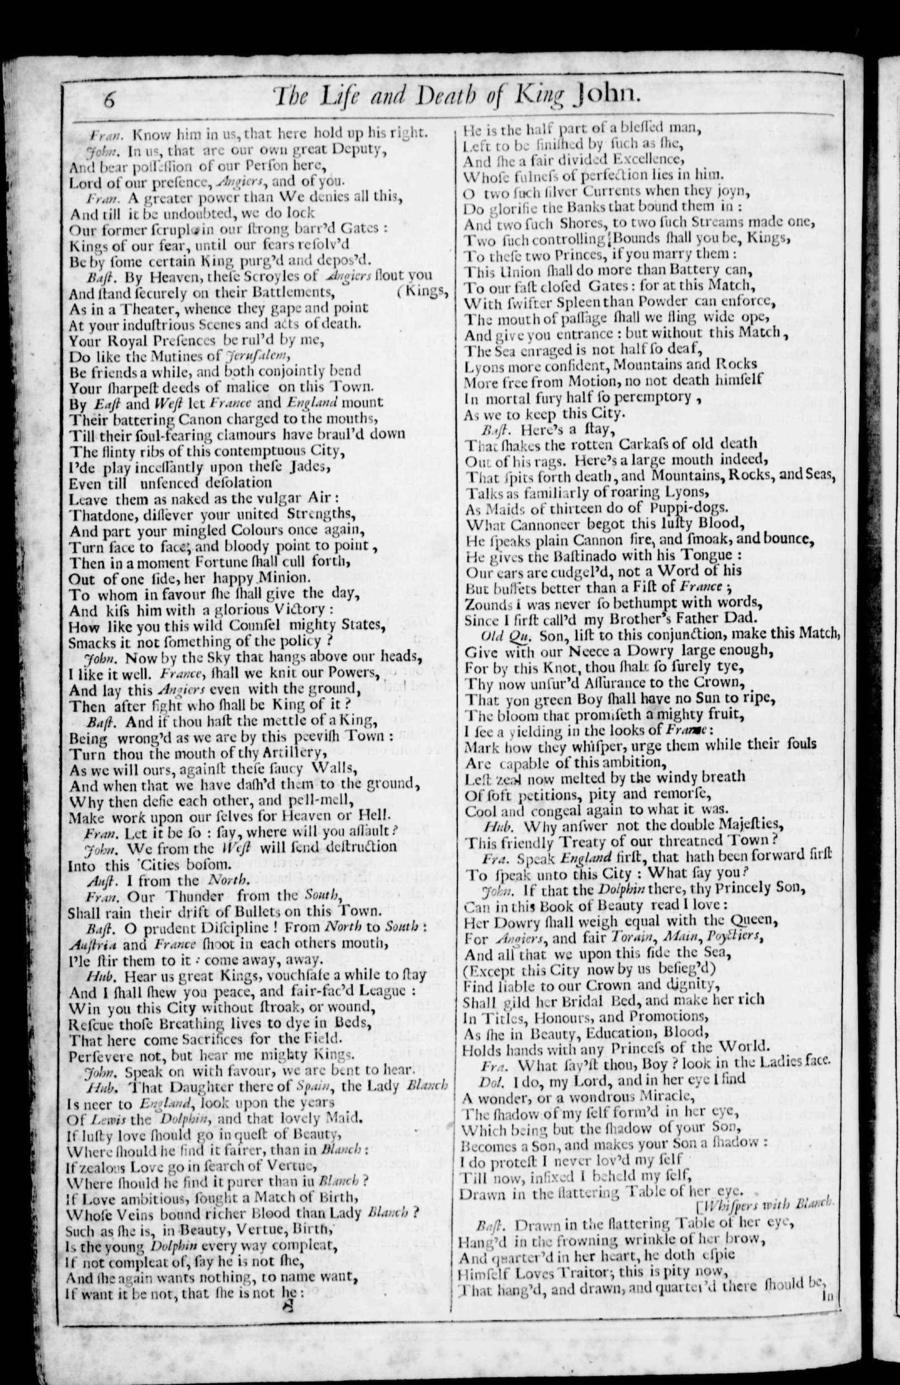 6
The Life and Death of King John.
Fran. Know him in us, that here hold up his right.
John. In us, that are our own great Deputy,
And bear poſſeſſion of our Perſon here,
Lord of our preſence, Angiers, and of you.
Fran. A greater power than We denies all this,
And till it be undoubted, we do lock
Our former ſcruple in our ſtrong barr'd Gates :
Kings of our fear, until our fears reſolv'd
Be by ſome certain King purg'd and depos'd.
Baſt. By Heaven, theſe Scroyles of Angiers flout you
And ſtand ſecurely on their Battlements, (Kings,
As in a Theater, whence they gape and point
At your induſtrious Scenes and acts of death.
Your Royal Preſences be rul'd by me,
Do like the Mutines of Jeruſalem,
Be friends a while, and both conjointly bend
Your ſharpeſt deeds of malice on this Town.
By Eaſt and Weſt let France and England mount
Their battering Canon charged to the mouths,
Till their ſoul-fearing clamours have braul'd down
The flinty ribs of this contemptuous City,
I'de play inceſſantly upon theſe Jades,
Even till unfenced deſolation
Leave them as naked as the vulgar Air :
Thatdone, diſſever your united Strengths,
And part your mingled Colours once again,
Turn face to face, and bloody point to point ,
Then in a moment Fortune ſhall cull forth,
Out of one ſide, her happy Minion.
To whom in favour ſhe ſhall give the day,
And kiſs him with a glorious Victory :
How like you this wild Counſel mighty States,
Smacks it not ſomething of the policy ?
John. Now by the Sky that hangs above our heads,
I like it well. France, ſhall we knit our Powers,
And lay this Angiers even with the ground,
Then after fight who ſhall be King of it ?
Baſt. And if thou haſt the mettle of a King,
Being wrong'd as we are by this peeviſh Town :
Turn thou the mouth of thy Artillery,
As we will ours, againſt theſe ſaucy Walls,
And when that we have daſh'd them to the ground,
Why then defie each other, and pell-mell,
Make work upon our ſelves for Heaven or Hell.
Fran. Let it be ſo : ſay, where will you aſſault ?
John. We from the Weſt will ſend deſtruction
Into this Cities boſom.
Auſt. I from the North.
Fran. Our Thunder from the South,
Shall rain their drift of Bullets on this Town.
Baſt. O prudent Diſcipline ! From North to South :
Auſtria and France ſhoot in each others mouth,
I'le ſtir them to it : come away, away.
Hub. Hear us great Kings, vouchſafe a while to ſtay
And I ſhall ſhew you peace, and fair-fac'd League :
Win you this City without ſtroak, or wound,
Reſcue thoſe Breathing lives to dye in Beds,
That here come Sacrifices for the Field.
Perſevere not, but hear me mighty Kings.
John. Speak on with favour, we are bent to hear.
Hub. That Daughter there of Spain, the Lady Blanch
Is neer to England, look upon the years
Of Lewis the Dolphin, and that lovely Maid.
If luſty love ſhould go in queſt of Beauty,
Where ſhould he find it fairer, than in Blanch :
If zealous Love go in ſearch of Vertue,
Where ſhould he find it purer than in Blanch ?
If Love ambitious, ſought a Match of Birth,
Whoſe Veins bound richer Blood than Lady Blanch ?
Such as ſhe is, in Beauty, Vertue, Birth,
Is the young Dolphin every way compleat,
If not compleat of, ſay he is not ſhe,
And ſhe again wants nothing, to name want,
If want it be not, that ſhe is not he :
He is the half part of a bleſſed man,
Left to be finiſhed by ſuch as ſhe,
And ſhe a fair divided Excellence,
Whoſe fulneſs of perfection lies in him.
O two ſuch ſilver Currents when they joyn,
Do glorifie the Banks that bound them in :
And two ſuch Shores, to two ſuch Streams made one,
Two ſuch controlling Bounds ſhall you be, Kings,
To theſe two Princes, if you marry them :
This Union ſhall do more than Battery can,
To our faſt cloſed Gates : for at this Match,
With ſwifter Spleen than Powder can enforce,
The mouth of paſſage ſhall we fling wide ope,
And give you entrance : but without this Match ,
The Sea enraged is not half ſo deaf,
Lyons more confident, Mountains and Rocks
More free from Motion, no not death himſelf
In mortal fury half ſo peremptory ,
As we to keep this City.
Baſt. Here's a ſtay,
That ſhakes the rotten Carkaſs of old death
Out of his rags. Here's a large mouth indeed,
That ſpits forth death, and Mountains, Rocks, and Seas,
Talks as familiarly of roaring Lyons,
As Maids of thirteen do of Puppi-dogs.
What Cannoneer begot this luſty Blood,
He ſpeaks plain Cannon fire, and ſmoak, and bounce,
He gives the Baſtinado with his Tongue :
Our ears are cudgel'd, not a Word of his
But buffets better than a Fiſt of France ;
Zounds I was never ſo bethumpt with words,
Since I firſt call'd my Brother's Father Dad.
Old Qu. Son, liſt to this conjunction, make this Match,
Give with our Neece a Dowry large enough,
For by this Knot, thou ſhalt ſo ſurely tye,
Thy now unſur'd Aſſurance to the Crown,
That yon green Boy ſhall have no Sun to ripe,
The bloom that promiſeth a mighty fruit,
I ſee a yielding in the looks of France :
Mark how they whiſper, urge them while their ſouls
Are capable of this ambition,
Leſt zeal now melted by the windy breath
Of ſoft petitions, pity and remorſe,
Cool and congeal again to what it was.
Hub. Why anſwer not the double Majeſties,
This friendly Treaty of our threatned Town ?
Fra. Speak England firſt, that hath been forward firſt
To ſpeak unto this City : What ſay you ?
John. If that the Dolphin there, thy Princely Son,
Can in this Book of Beauty read I love :
Her Dowry ſhall weigh equal with the Queen,
For Angiers, and fair Torain, Main, Poyctiers,
And all that we upon this ſide the Sea,
(Except this City now by us beſieg'd)
Find liable to our Crown and dignity,
Shall gild her Bridal Bed, and make her rich
In Titles, Honours, and Promotions,
As ſhe in Beauty, Education, Blood,
Holds hands with any Princeſs of the World.
Fra. What ſay'ſt thou, Boy ? look in the Ladies face.
Dol. I do, my Lord, and in her eye I find
A wonder, or a wondrous Miracle,
The ſhadow of my ſelf form'd in her eye,
Which being but the ſhadow of your Son,
Becomes a Son, and makes your Son a ſhadow :
I do proteſt I never lov'd my ſelf
Till now, infixed I beheld my ſelf,
Drawn in the flattering Table of her eye.
[Whiſpers with Blanch.
Baſt. Drawn in the flattering Table of her eye,
Hang'd in the frowning wrinkle of her brow,
And quarter'd in her heart, he doth eſpie
Himſelf Loves Traitor, this is pity now,
That hang'd, and drawn, and quarter'd there ſhould be,
In